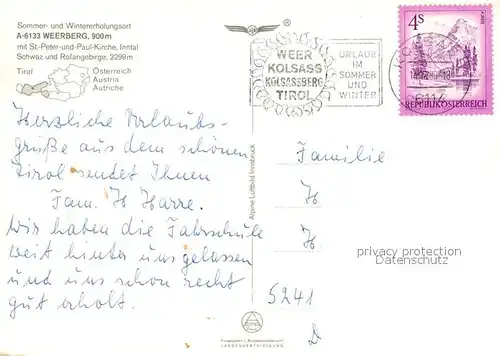 Sommer- und Wintererholungsort
A-6133 WEERBERG, 900m
mit St.-Peter-und-Paul-Kirche, Inntal
Schwaz und Rofangebirge, 2299m
Tirol
Österreich
Austria
Autriche
WEER
KOLSASS
KOLSASSBERG
TIROL
URLAUB
IM
SOMMER
UND
WINTER
4S
REPUBLIK ÖSTERREICH
6114
Herzliche Urlaubs-
grüße aus dem schönen
Tirol sendet Ihnen
Fam. H Harre.
Wir haben die Fahrschule
weit hinter uns gelassen
und uns schon recht
gut erholt.
Alpine Luftbild Innsbruck
Familie
H
H
privacy protection
Datenschutz
5241
LANDESVERTEIDIGUNG